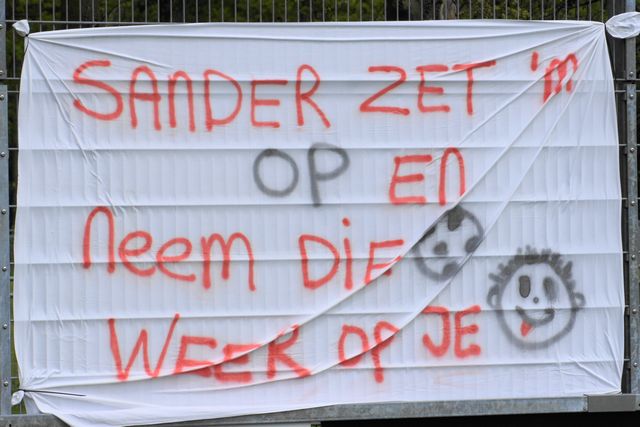 SANDER ZET 'm
OP EN
neem DIE
WEER OP JE